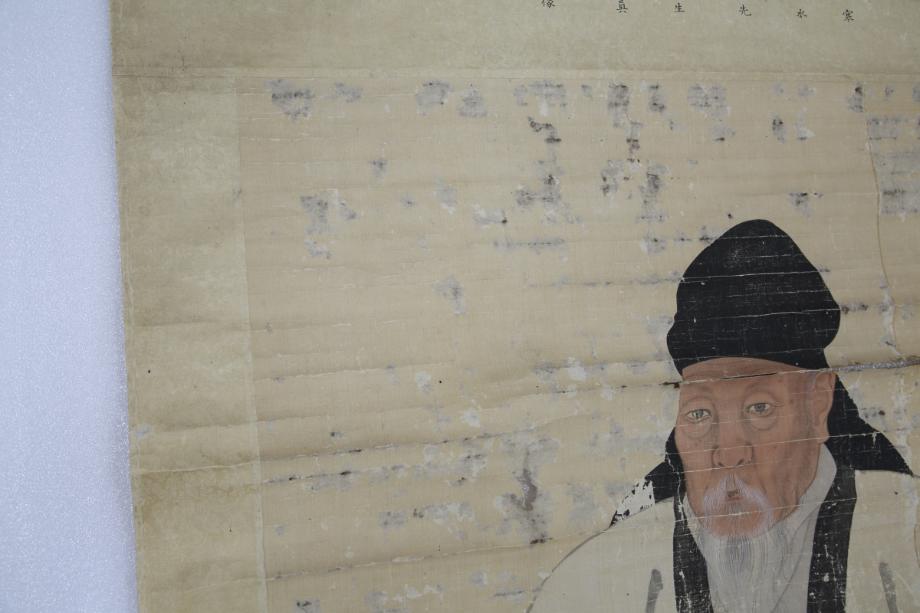 寒水先生真像